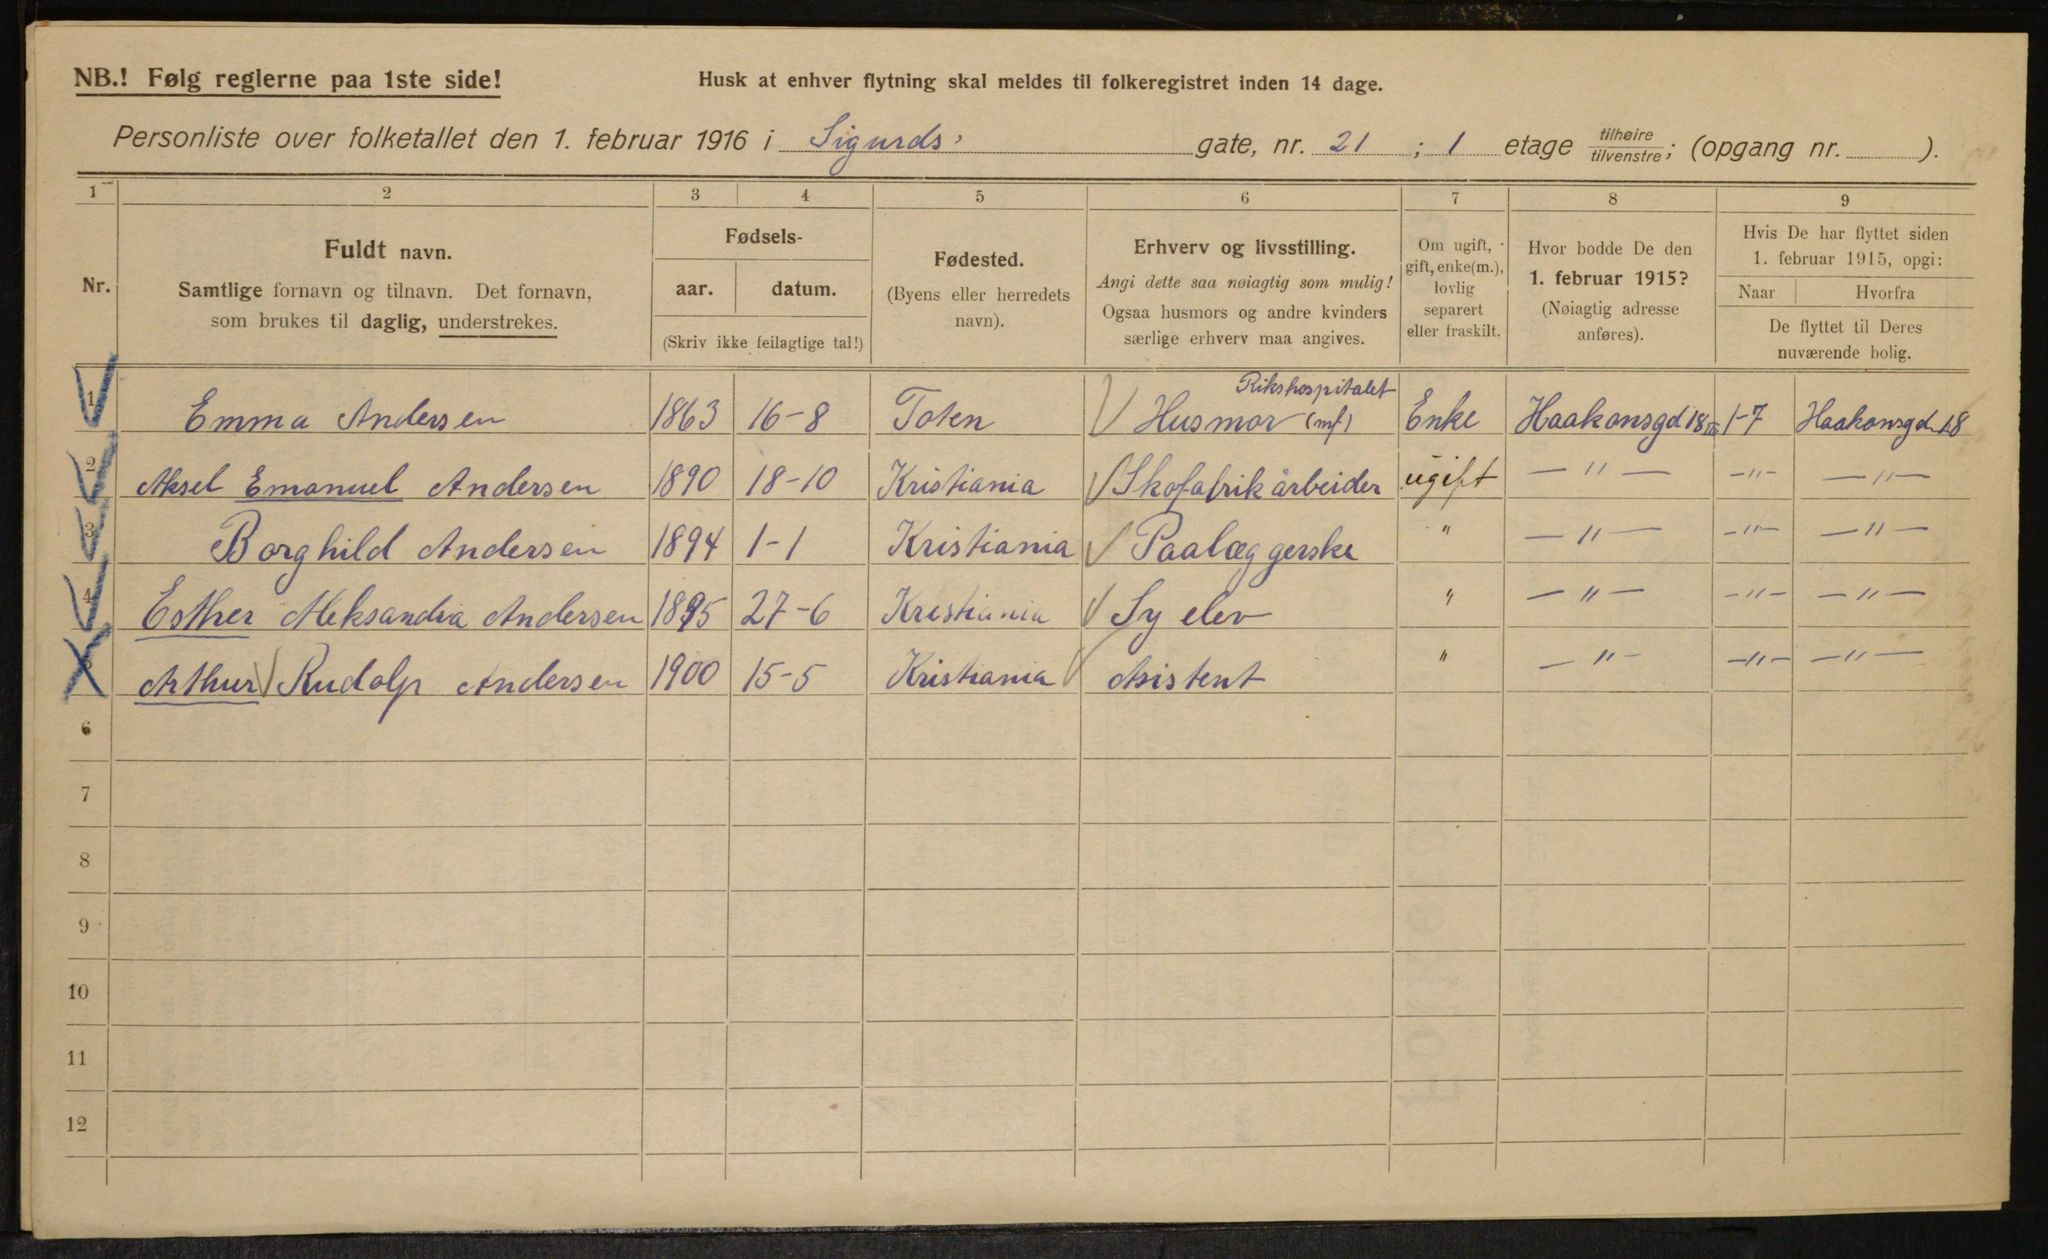 NB.! Følg reglerne paa 1ste side!
Husk at enhver flytning skal meldes til folkeregistret inden 14 dage.
Personliste over folketallet den 1. februar 1916 i Sigurds' gate, nr. 21 ; 1 etage tilhøire/tilvenstre; (opgang nr. ).
1 2 3 4 5 6 7 8 9
Nr.
Fuldt navn.
Samtlige fornavn og tilnavn. Det fornavn,
som brukes til daglig, understrekes.
Fødsels-
aar. datum.
(Skriv ikke feilagtige tal!)
Fødested.
(Byens eller herredets
navn).
Erhverv og livsstilling.
Angi dette saa nøiagtig som mulig!
Ogsaa husmors og andre kvinders
særlige erhverv maa angives.
Om ugift,
gift, enke(m.),
lovlig
separert
eller fraskilt.
Hvor bodde De den
1. februar 1915?
(Nøiagtig adresse
anføres).
Hvis De har flyttet siden
1. februar 1915, opgi:
Naar Hvorfra
De flyttet til Deres
nuværende bolig.
Rikshospitalet
1 Emma Andersen 1863 16-8 Toten Husmor (mf) Enke Haakonsgd 18 III 1-7 Haakonsgd. 18
2 Aksel Emanuel Andersen 1890 18-10 Kristiania Skofabrikarbeider ugift —"— —"— —"—
3 Borghild Andersen 1894 1-1 Kristiania Paalæggerske " —"— —"— —"—
4 Esther Aleksandra Andersen 1895 27-6 Kristiania Sy elev " —"— —"— —"—
5 Arthur Rudolp Andersen 1900 15-5 Kristiania Asistent " —"— —"— —"—
6
7
8
9
10
11
12